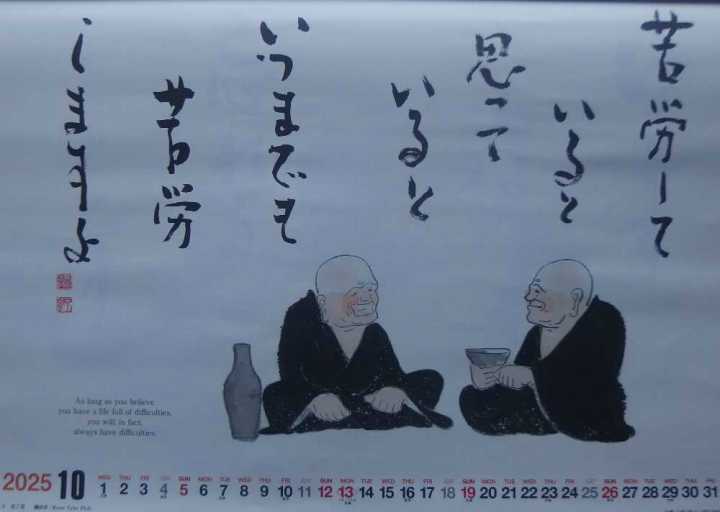 苦労して
いると
思って
いると
いつまでも
苦労
しますよ
As long as you believe
you have a life full of difficulties,
you will in fact,
always have difficulties.
2025 10
WED THU FRI SAT SUN MON TUE WED THU FRI SAT SUN MON TUE WED THU FRI SAT SUN MON TUE WED THU FRI SAT SUN MON TUE WED THU FRI
1 2 3 4 5 6 7 8 9 10 11 12 13 14 15 16 17 18 19 20 21 22 23 24 25 26 27 28 29 30 31